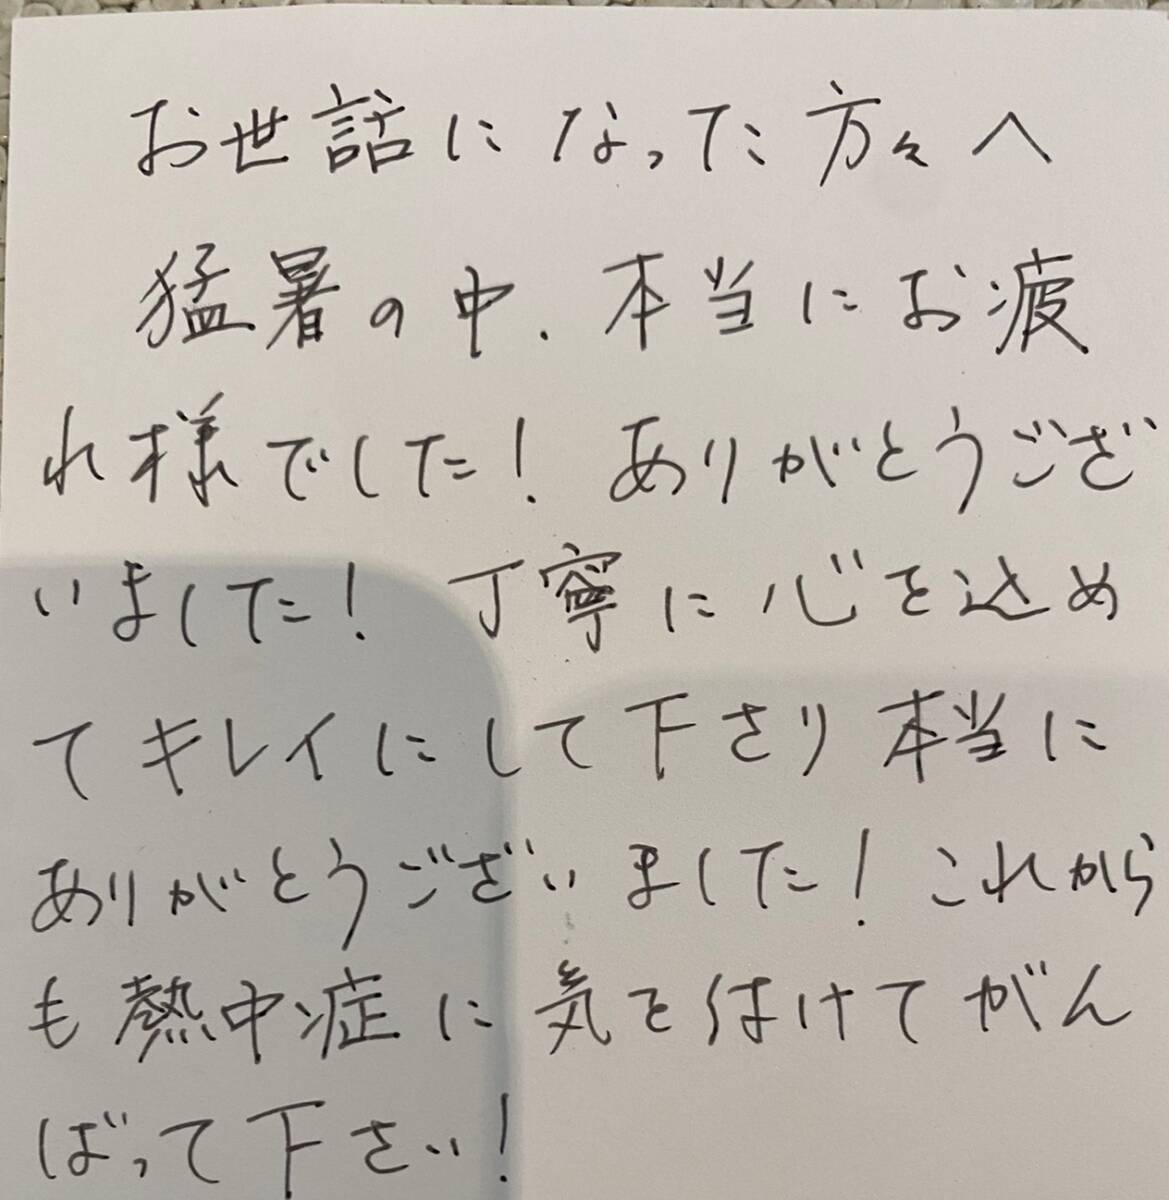 お世話になった方々へ
猛暑の中、本当にお疲
れ様でした！ありがとうござ
いました！丁寧に心を込め
てキレイにして下さり本当に
ありがとうございました！これから
も熱中症に気を付けてがん
ばって下さい！